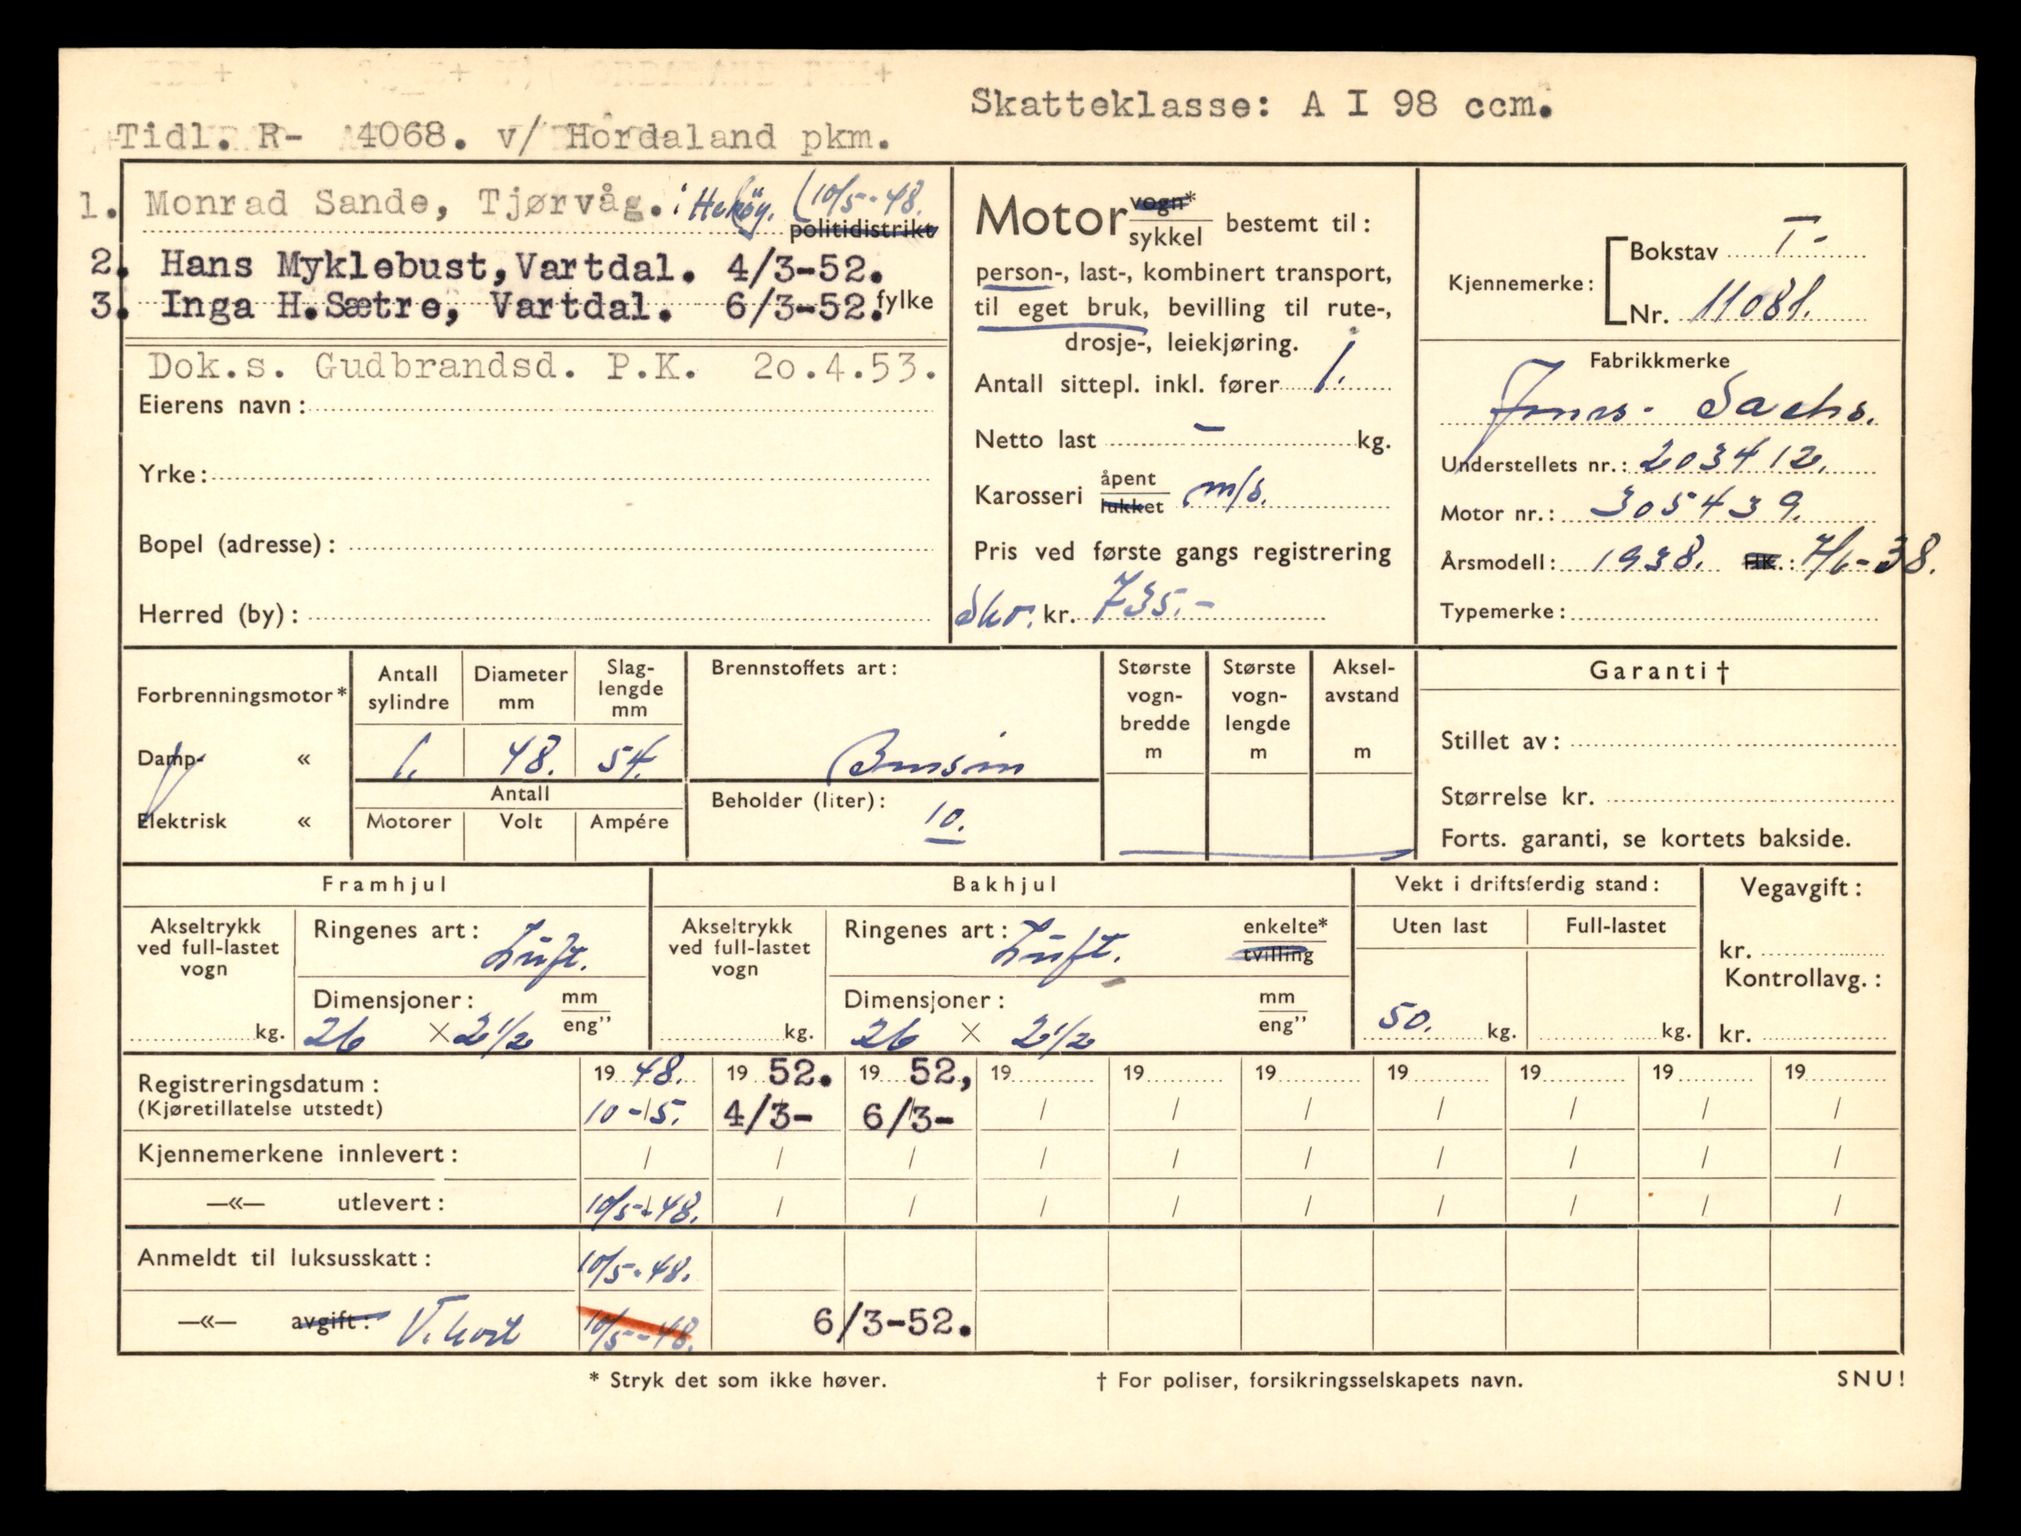 Skatteklasse: A I 98 ccm.
Tidl. R- 4068. v/ Hordaland pkm.
1. Monrad Sande, Tjørvåg. i Herøy. (10/5-48.
politidistrikt
2. Hans Myklebust, Vartdal. 4/3-52.
3. Inga H. Sætre, Vartdal. 6/3-52. fylke
Dok.s. Gudbrandsd. P.K. 2o.4.53.
Eierens navn:
Yrke:
Bopel (adresse):
Herred (by):
Motor vogn* sykkel bestemt til:
person-, last-, kombinert transport,
til eget bruk, bevilling til rute-,
drosje-, leiekjøring.
Antall sittepl. inkl. fører 1.
Netto last – kg.
Karosseri åpent lukket m/s.
Pris ved første gangs registrering
Skr. kr. 735.-
Kjennemerke: Bokstav T-
Nr. 11081.
Fabrikkmerke
Sachs.
Understellets nr.: 203412.
Motor nr.: 305439.
Årsmodell: 1938. HK.: 7/6-38.
Typemerke:
Forbrenningsmotor*
Damp- «
Elektrisk «
Antall sylindre 1.
Diameter mm 48.
Slag-lengde mm 54.
Antall
Motorer Volt Ampére
Brennstoffets art:
Bensin
Beholder (liter):
10.
Største vogn-bredde m
Største vogn-lengde m
Aksel-avstand m
Garanti †
Stillet av:
Størrelse kr.
Forts. garanti, se kortets bakside.
Framhjul
Akseltrykk ved full-lastet vogn
kg.
Ringenes art: Luft.
Dimensjoner: mm eng”
26 × 2 1/2
Bakhjul
Akseltrykk ved full-lastet vogn
kg.
Ringenes art: Luft. enkelte* tvilling
Dimensjoner: mm eng”
26 × 2 1/2
Vekt i driftsferdig stand:
Uten last Full-lastet
50. kg. kg.
Vegavgift:
kr.
Kontrollavg.:
kr.
Registreringsdatum: 19 48. 19 52. 19 52, 19 19 19 19 19 19 19
(Kjøretillatelse utstedt) 10-5. 4/3- 6/3- / / / / / / /
Kjennemerkene innlevert: / / / / / / / / / /
—«— utlevert: 10/5-48. / / / / / / / / /
Anmeldt til luksusskatt: 10/5-48.
—«— avgift: V.kort 10/5-48. 6/3-52.
* Stryk det som ikke høver. † For poliser, forsikringsselskapets navn. SNU!